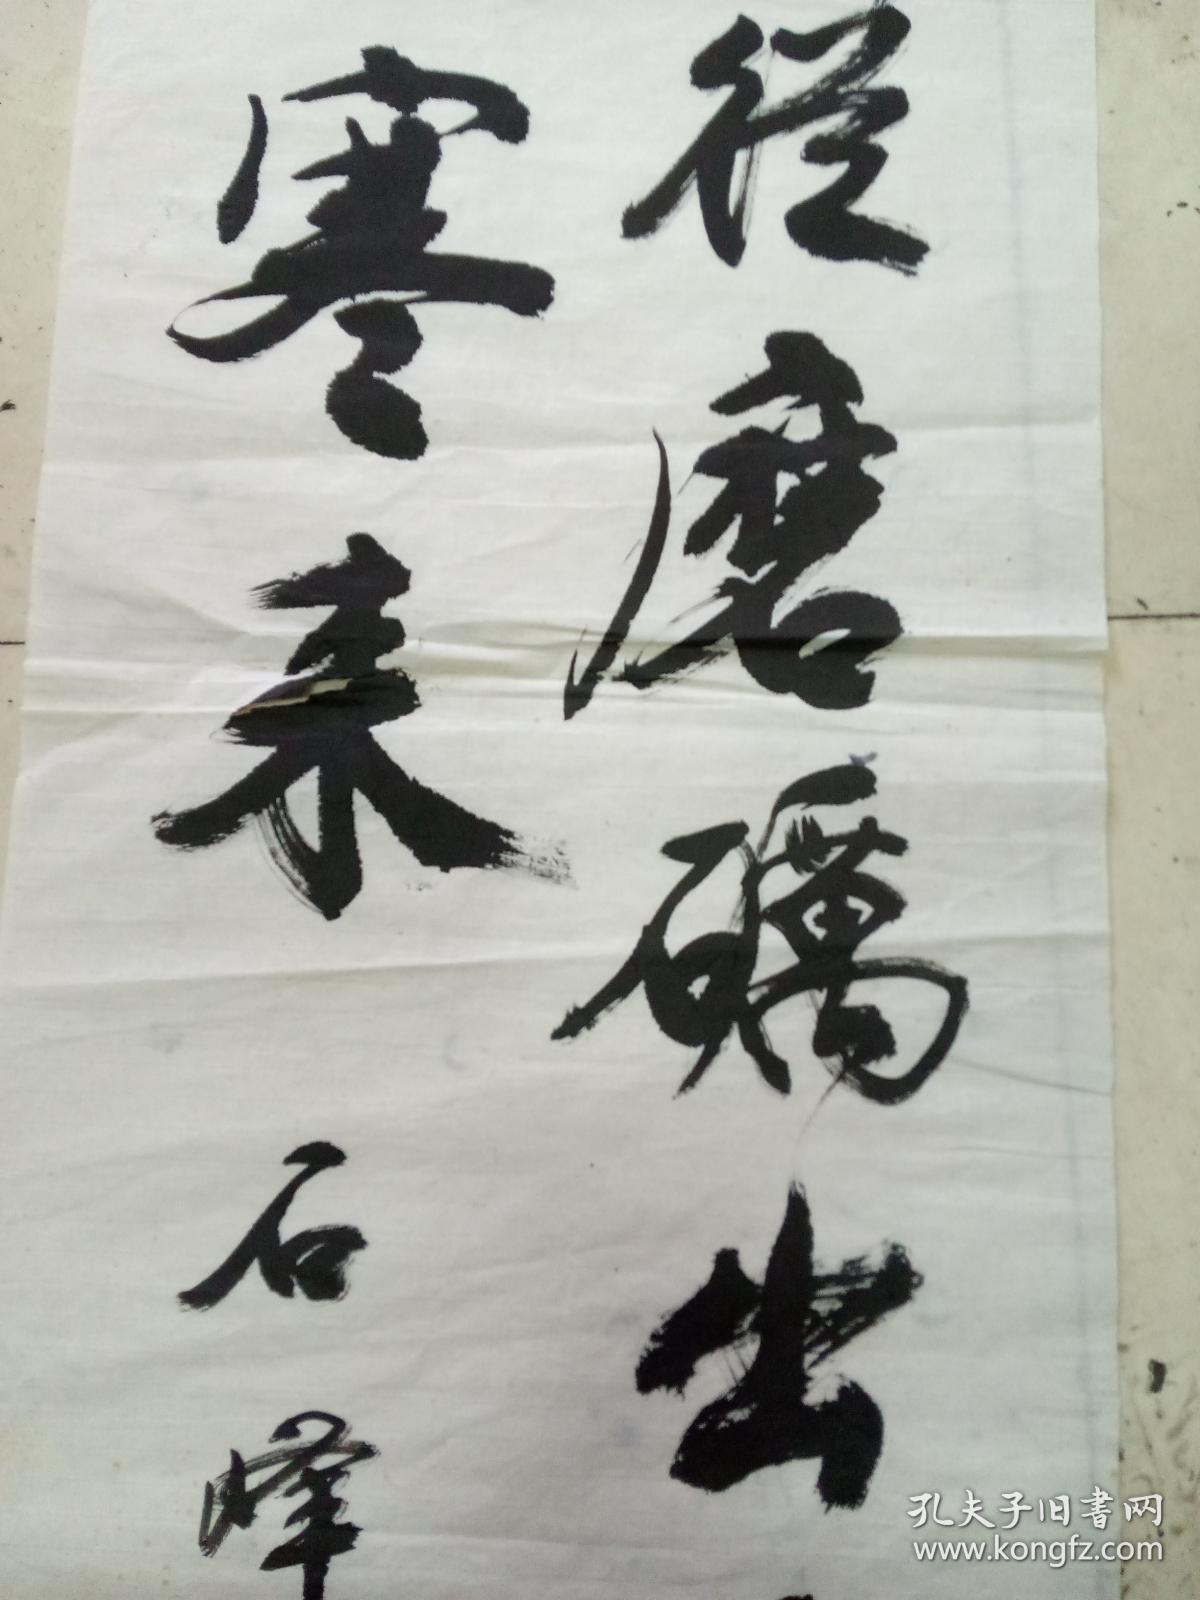 從磨礪出
寒来
石峰
孔夫子旧书网
www.kongfz.com